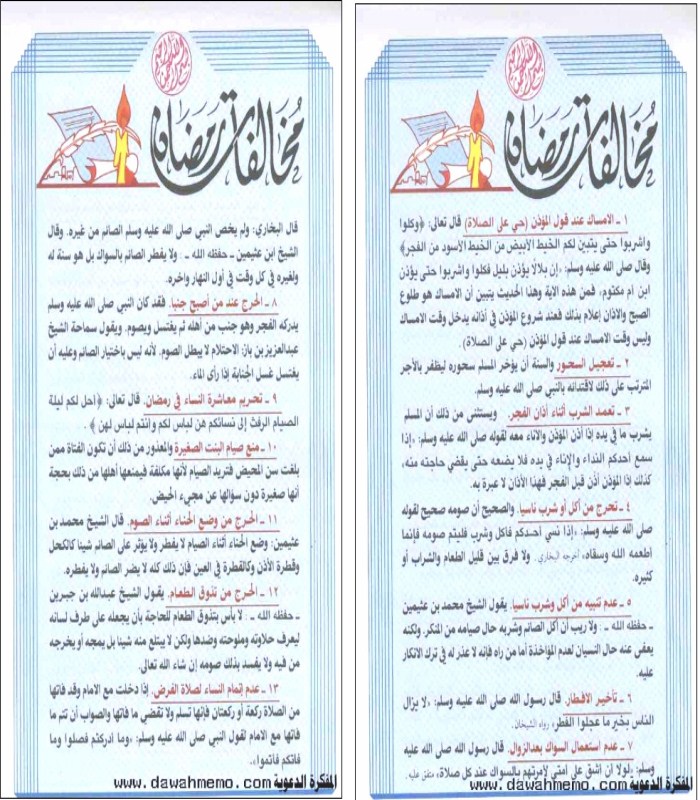 مخالفات رمضان
١ ـ الامساك عند قول المؤذن (حي على الصلاة) قال تعالى: ﴿وكلوا
واشربوا حتى يتبين لكم الخيط الأبيض من الخيط الأسود من الفجر﴾
وقال صلى الله عليه وسلم: «إن بلالاً يؤذن بليل فكلوا واشربوا حتى يؤذن
ابن ام مكتوم، فمن هذه الاية وهذا الحديث يتبين أن الامساك هو طلوع
الصبح والاذان إعلام بذلك فعند شروع المؤذن في أذانه يدخل وقت الامساك
وليس وقت الامساك عند قول المؤذن (حي على الصلاة)
٢ ـ تعجيل السحور والسنة أن يؤخر المسلم سحوره ليظفر بالأجر
المترتب على ذلك لاقتدائه بالنبي صلى الله عليه وسلم.
٣ ـ تعمد الشرب أثناء أذان الفجر. ويستثنى من ذلك أن المسلم
يشرب ما في يده إذا أذن المؤذن والاناء معه لقوله صلى الله عليه وسلم: «إذا
سمع أحدكم النداء والإناء في يده فلا يضعه حتى يقضي حاجته منه،
كذلك إذا المؤذن أذن قبل الفجر فهذا الأذان لا عبرة به.
٤ ـ تحرج من أكل أو شرب ناسيا. والصحيح أن صومه صحيح لقوله
صلى الله عليه وسلم: «إذا نسي أحدكم فاكل وشرب فليتم صومه فإنما
اطعمه الله وسقاه، اخرجه البخاري. ولا فرق بين قليل الطعام والشراب أو
كثيره.
٥ ـ عدم تنبيه من أكل وشرب ناسيا. يقول الشيخ محمد بن عثيمين
ـ حفظه الله ـ : ولا ريب أن أكل الصائم وشربه حال صيامه من المنكر. ولكنه
يعفى عنه حال النسيان لعدم المؤاخذة أما من راه فإنه لا عذر له في ترك الانكار
عليه.
٦ ـ تأخير الافطار. قال رسول الله صلى الله عليه وسلم: «لا يزال
الناس بخير ما عجلوا الفطر، رواه الشيخان.
٧ ـ عدم استعمال السواك بعدالزوال. قال رسول الله صلى الله عليه
وسلم: «لولا أن أشق على أمتي لأمرتهم بالسواك عند كل صلاة، متفق عليه.
المفكرة الدعوية www.dawahmemo.com
مخالفات رمضان
قال البخاري: ولم يخص النبي صلى الله عليه وسلم الصائم من غيره. وقال
الشيخ ابن عثيمين ـ حفظه الله ـ : ولا يفطر الصائم بالسواك بل هو سنة له
ولغيره في كل وقت في أول النهار واخره.
٨ ـ الحرج عند من أصبح جنبا. فقد كان النبي صلى الله عليه وسلم
يدركه الفجر وهو جنب من أهله ثم يغتسل ويصوم. ويقول سماحة الشيخ
عبدالعزيز بن باز: الاحتلام لا يبطل الصوم. لأنه ليس باختيار الصائم وعليه أن
يغتسل غسل الجنابة إذا رأى الماء.
٩ ـ تحريم معاشرة النساء في رمضان. قال تعالى: ﴿احل لكم ليلة
الصيام الرفث إلى نسائكم هن لباس لكم وأنتم لباس لهن﴾.
١٠ ـ منع صيام البنت الصغيرة والمعذور من ذلك أن تكون الفتاة ممن
بلغت سن المحيض فتريد الصيام لأنها مكلفة فيمنعها أهلها من ذلك بحجة
أنها صغيرة دون سؤالها عن مجيء الحيض.
١١ ـ الحرج من وضع الحناء أثناء الصوم. قال الشيخ محمد بن
عثيمين: وضع الحناء أثناء الصيام لا يفطر ولا يؤثر على الصائم شيئا كالكحل
وقطرة الأذن وكالقطرة في العين فإن ذلك كله لا يضر الصائم ولا يفطره.
١٢ ـ الحرج من تذوق الطعام. يقول الشيخ عبدالله بن جبرين
ـ حفظه الله ـ : لا بأس بتذوق الطعام للحاجة بأن يجعله على طرف لسانه
ليعرف حلاوته وملوحته وضدها ولكن لا يبتلع منه شيئا بل يمجه أو يخرجه
من فيه ولا يفسد بذلك صومه إن شاء الله تعالى.
١٣ ـ عدم إتمام النساء لصلاة الفرض. إذا دخلت مع الامام وقد فاتها
من الصلاة ركعة أو ركعتان فإنها تسلم ولا تقضي ما فاتها والصواب أن تتم ما
فاتها مع الامام لقول النبي صلى الله عليه وسلم: «وما ادركتم فصلوا وما
فاتكم فأتموا».
المفكرة الدعوية www.dawahmemo.com